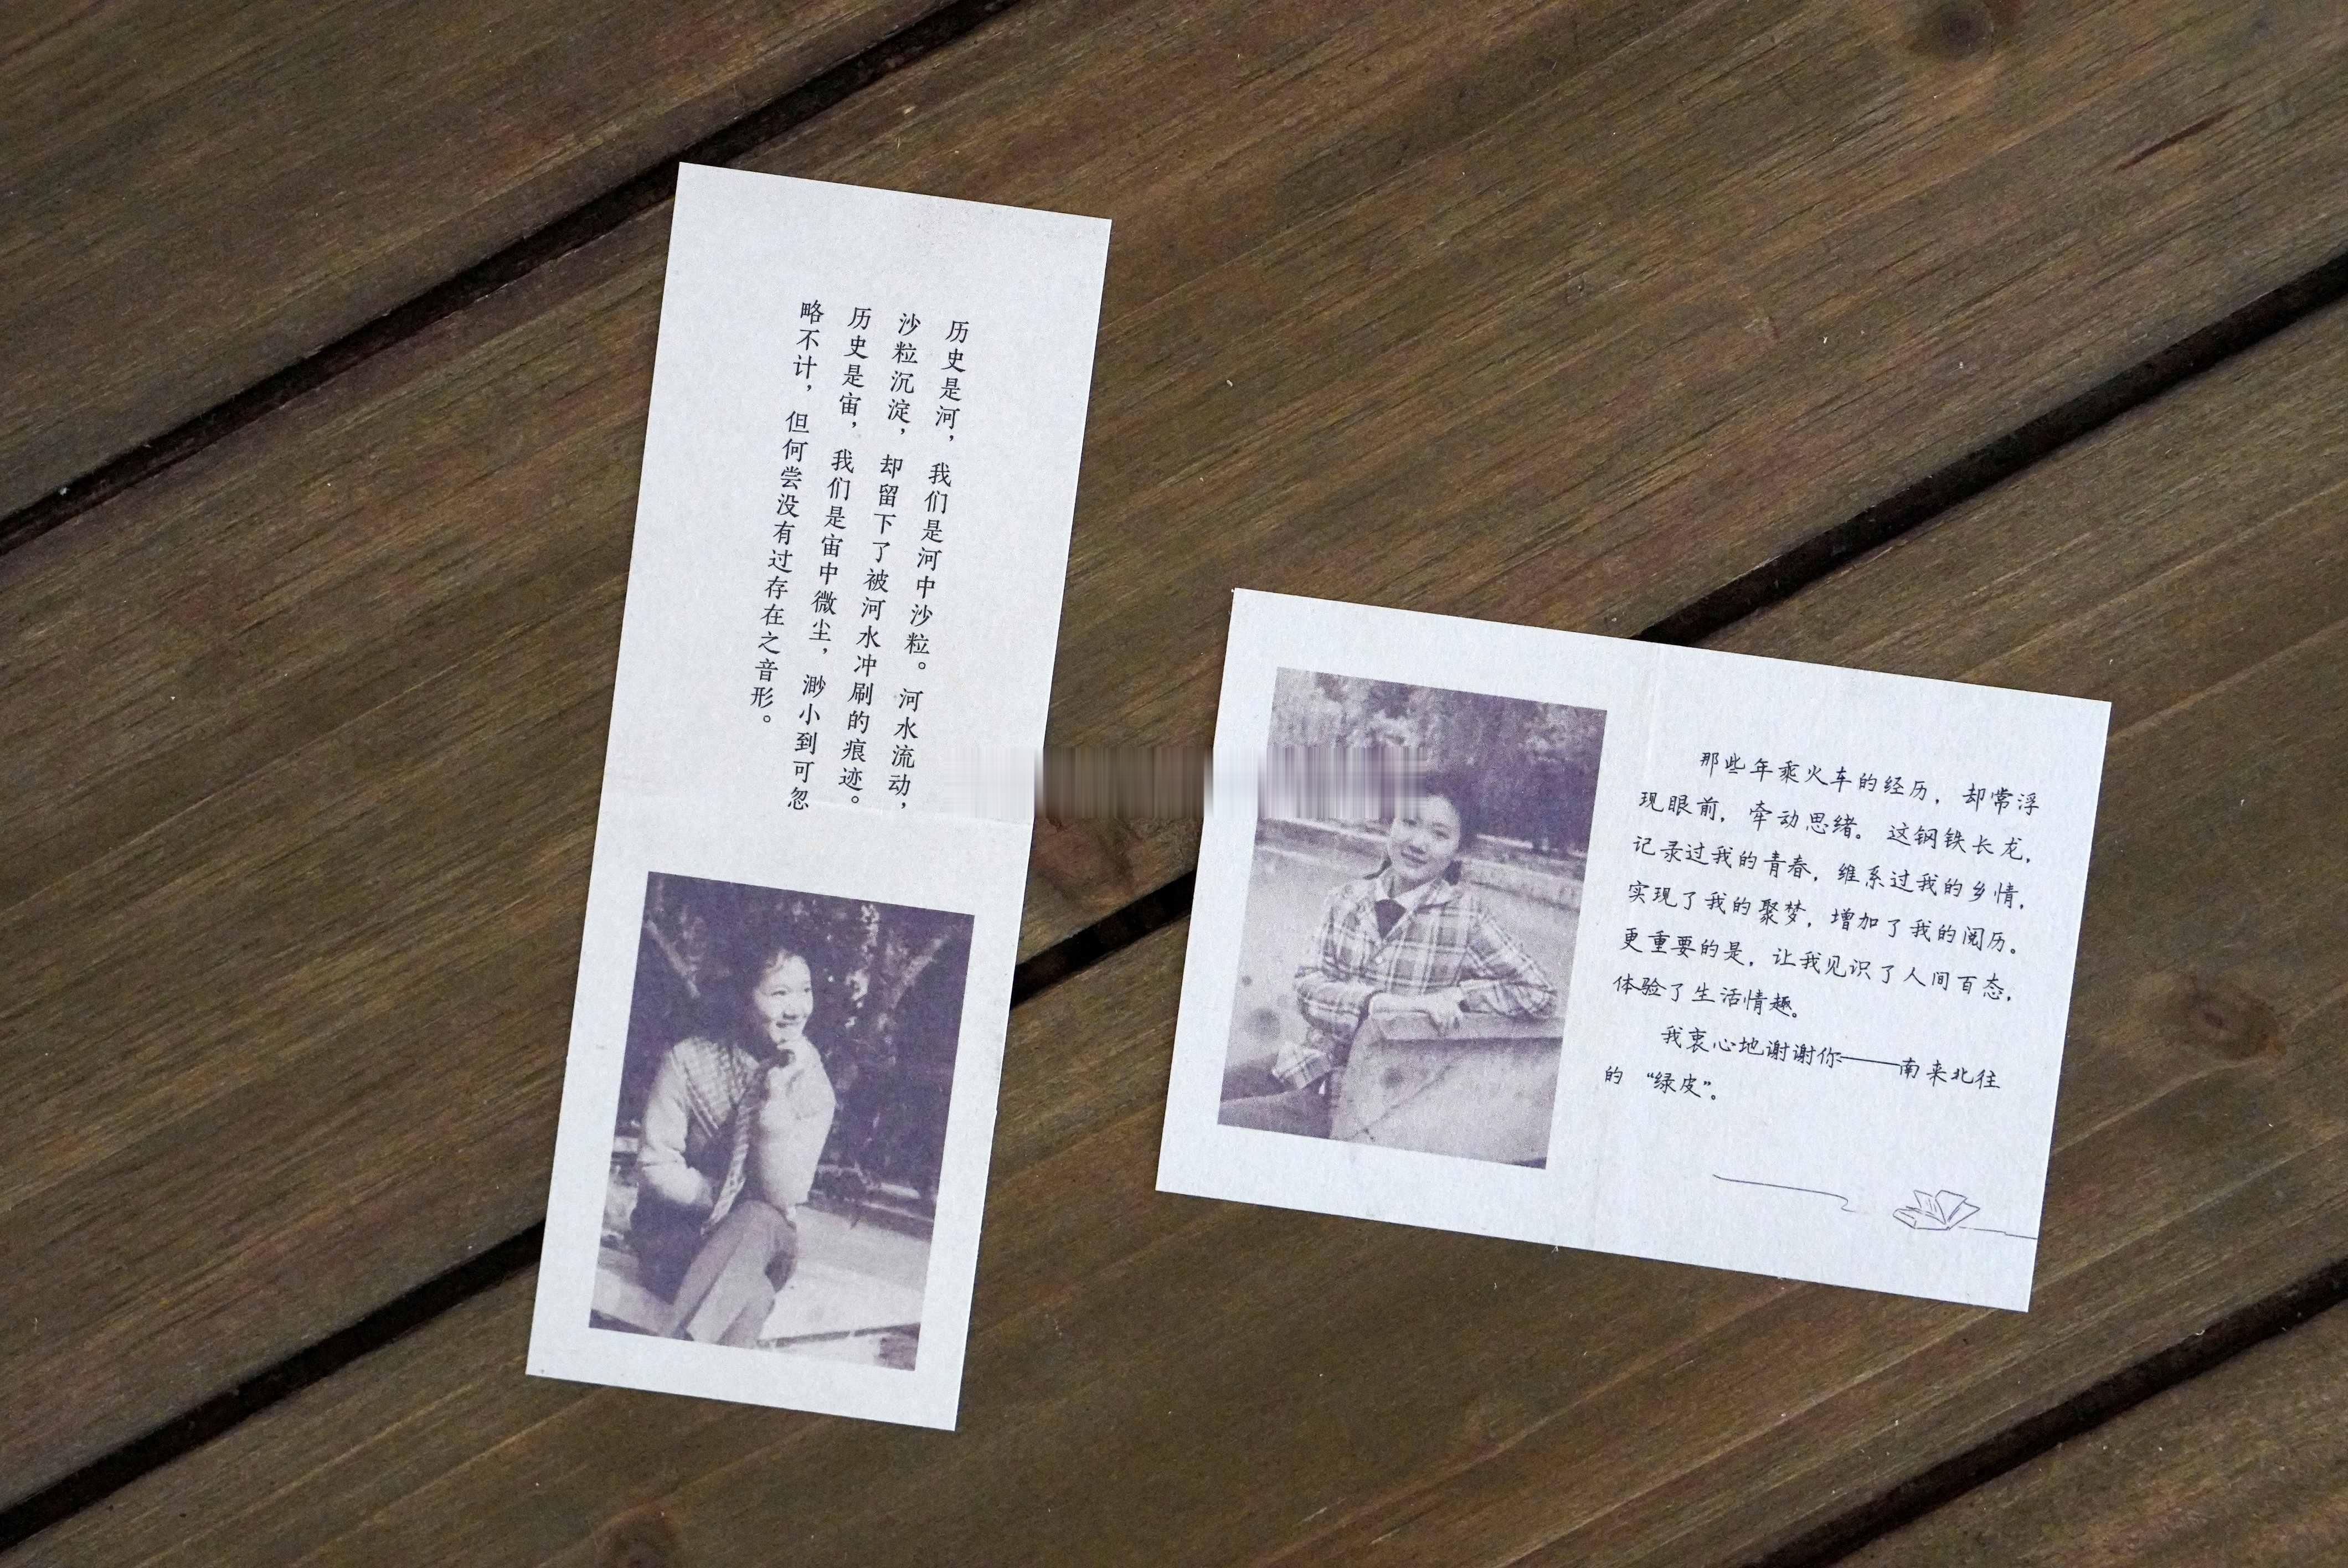 历史是河，我们是河中沙粒。河水流动，
沙粒沉淀，却留下了被河水冲刷的痕迹。
历史是宙，我们是宙中微尘，渺小到可忽
略不计，但何尝没有过存在之音形。
那些年乘火车的经历，却常浮
现眼前，牵动思绪。这钢铁长龙，
记录过我的青春，维系过我的乡情，
实现了我的聚梦，增加了我的阅历。
更重要的是，让我见识了人间百态，
体验了生活情趣。
我衷心地谢谢你——南来北往
的“绿皮”。